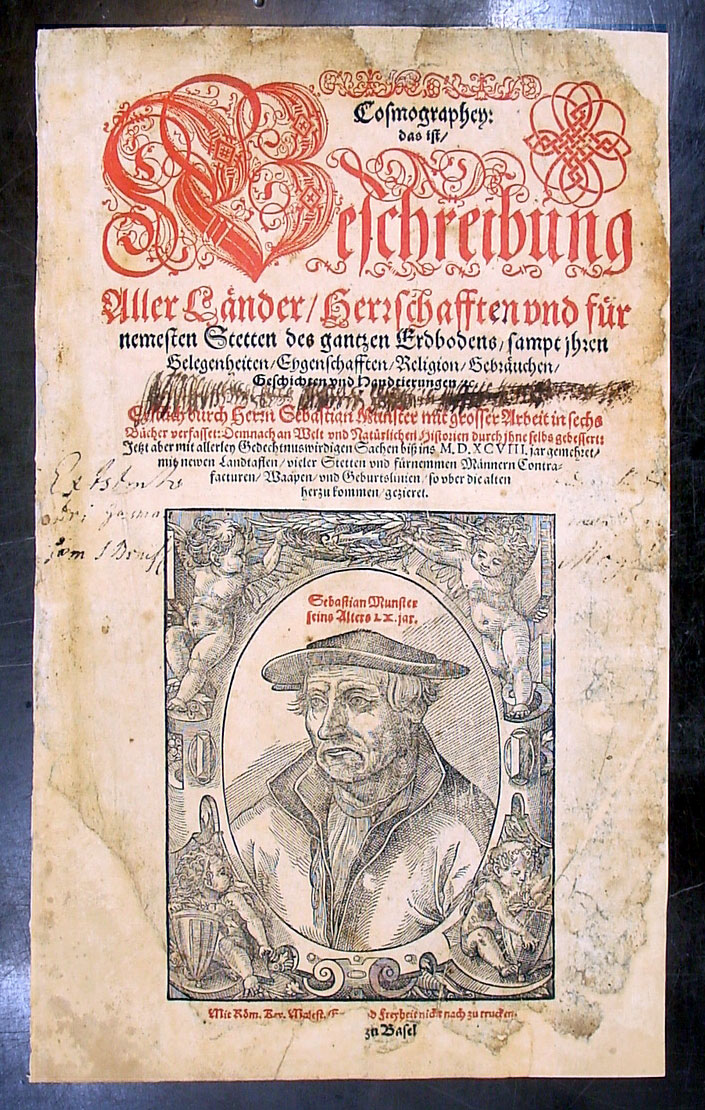 Cosmographey:
das ist/
Beschreibung
Aller Länder/ Herrschafften vnd für
nemesten Stetten des gantzen Erdbodens/ sampt jhren
Gelegenheiten/ Eygenschafften/ Religion/ Gebräuchen/
Geschichten vnd Handtierungen/ ꝛc.
Erstlich durch Herrn Sebastian Munster mit grosser Arbeit in sechs
Bücher verfasset: Demnach an Welt vnd Natürlichen Historien durch jhne selbs gebessert:
Jetzt aber mit allerley Gedechtnuswirdigen Sachen biß ins M.D.XCVIII. jar gemehret/
mit newen Landtaflen/ vieler Stetten vnd fürnemmen Männern Contra-
facturen/ Waapen/ vnd Geburtslinien/ so vber die alten
herzu kommen/ gezieret.
Sebastian Munster
seins Alters LX. jar.
Mit Röm. Key. Majest. Freyheit nicht nach zu trucken.
zu Basel